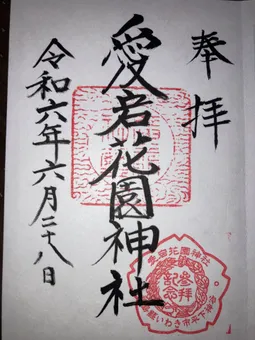 奉拝
愛宕花園神社
令和六年六月二十八日
愛宕花園神社
参拝
記念